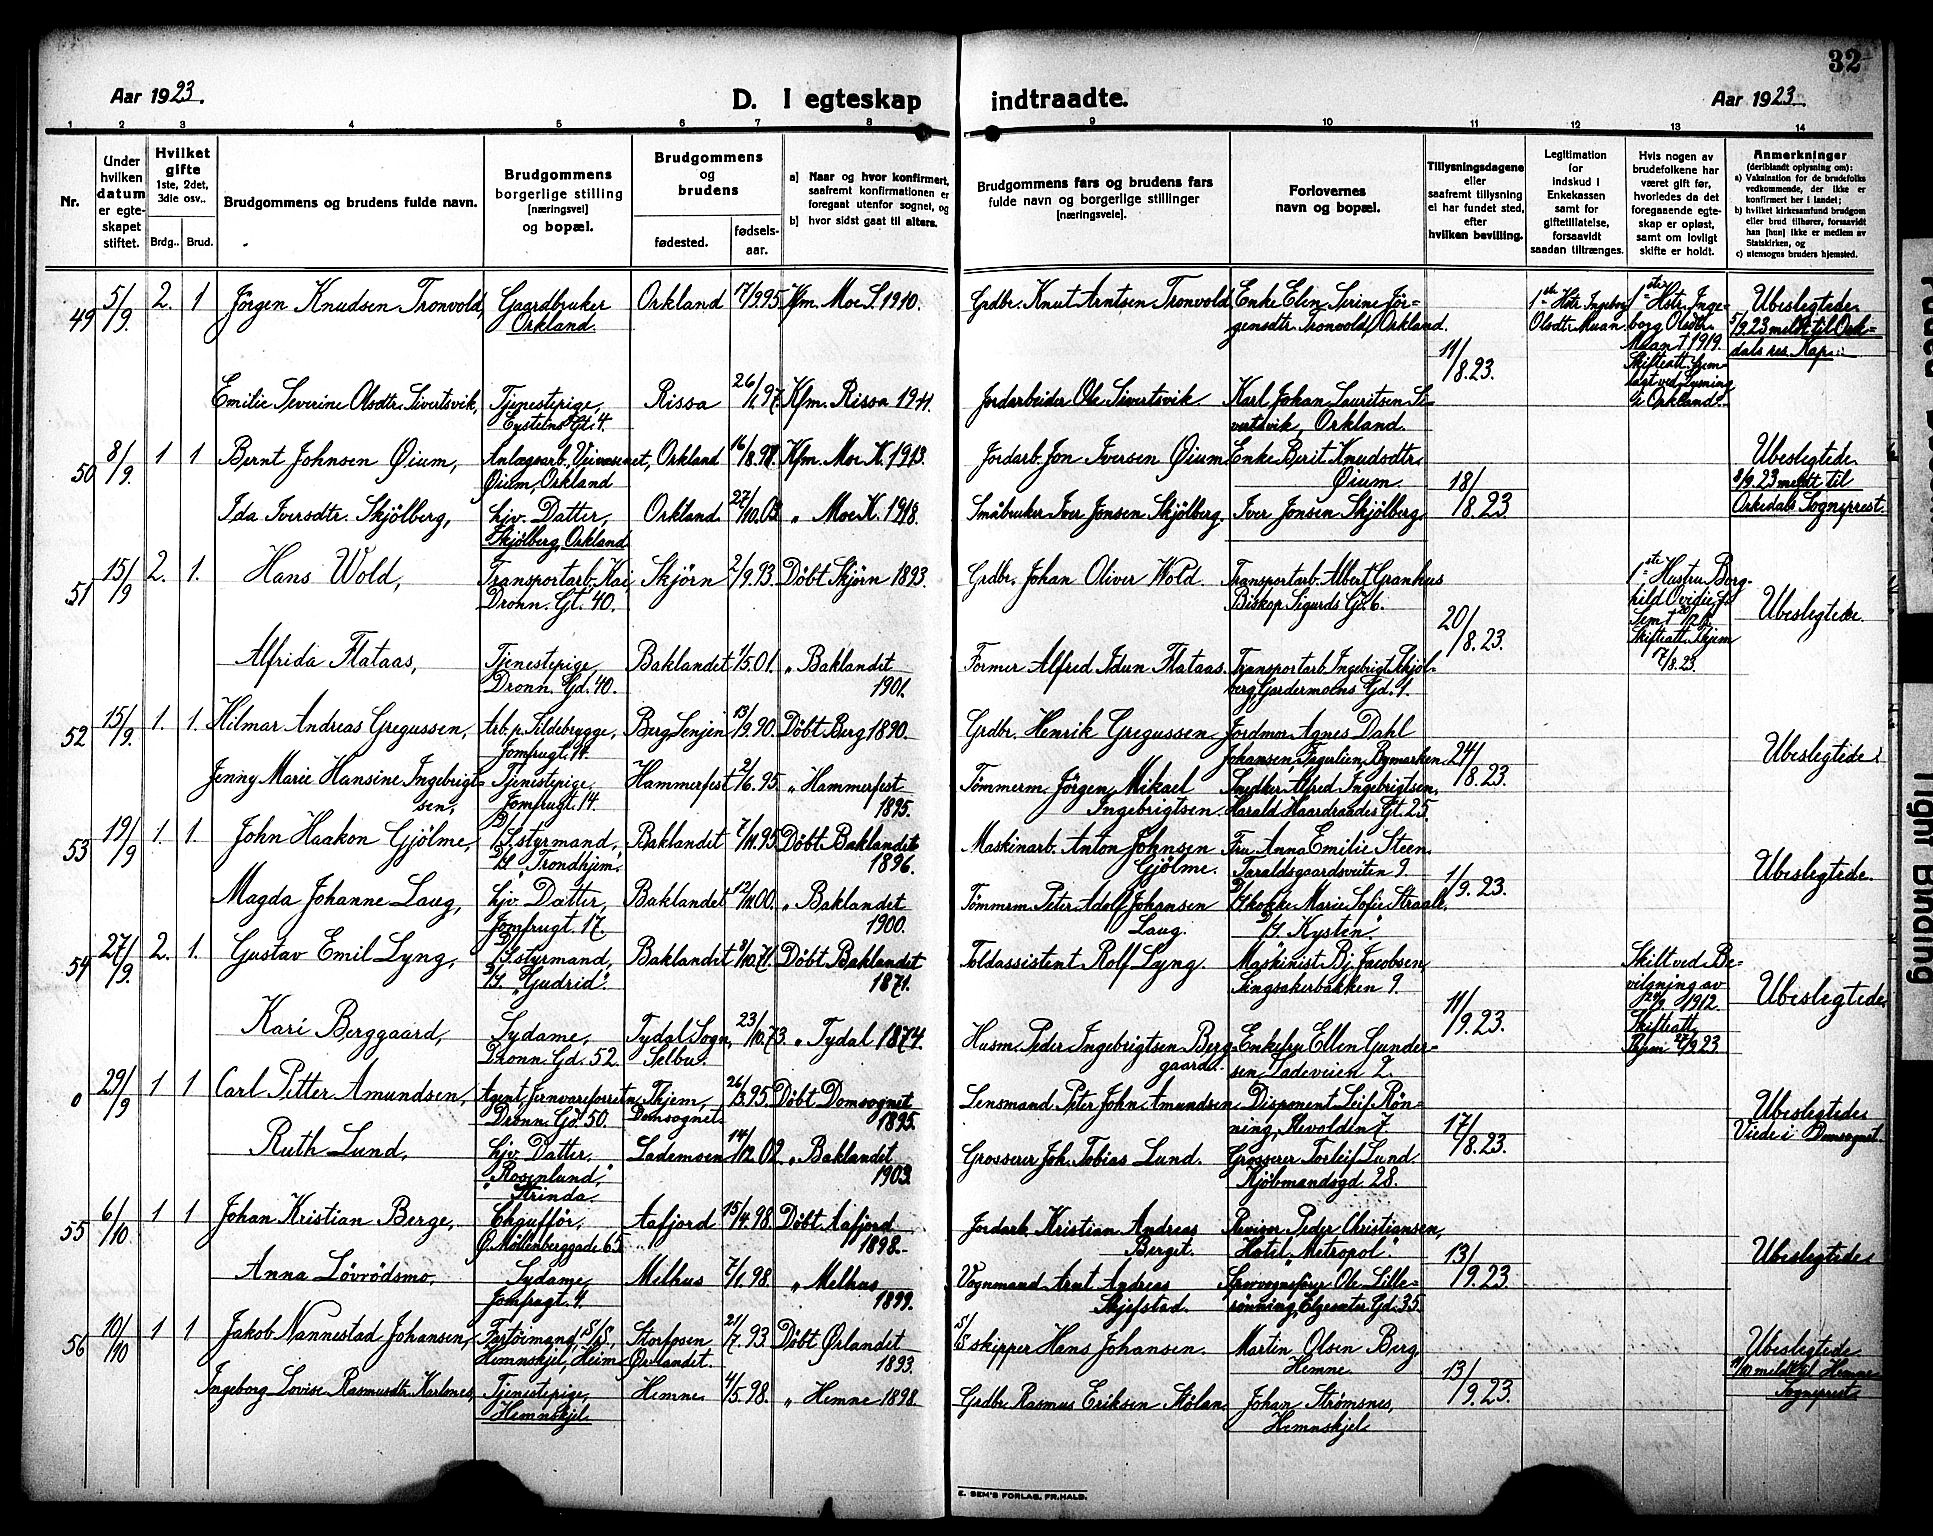 32
Aar 1923.
D. I egteskap
indtraadte.
Aar 1923.
1 2 3 4 5 6 7 8 9 10 11 12 13 14
Nr.
Under
hvilken
datum
er egte-
skapet
stiftet.
Hvilket
gifte
1ste, 2det,
3die osv..
Brdg.. Brud.
Brudgommens og brudens fulde navn.
Brudgommens
borgerlige stilling
(næringsvei)
og bopæl.
Brudgommens
og
brudens
fødested.
fødsels-
aar.
a) Naar og hvor konfirmert,
saafremt konfirmationen er
foregaat utenfor sognet, og
b) hvor sidst gaat til alters.
Brudgommens fars og brudens fars
fulde navn og borgerlige stillinger
(næringsveie).
Forlovernes
navn og bopæl.
Tillysningsdagene
eller
saafremt tillysning
ei har fundet sted,
efter
hvilken bevilling.
Legitimation
for
indskud i
Enkekassen
samt for
giftetillatelse,
forsaavidt
saadan tiltrænges.
Hvis nogen av
brudefolkene har
været gift før,
hvorledes da det
foregaaende egte-
skap er opløst,
samt om lovligt
skifte er holdt.
Anmerkninger
(deriblandt oplysning om):
a) Vaksination for de brudefolks
vedkommende, der ikke er
konfirmert her i landet;
b) hvilket kirkesamfund brudgom
eller brud tilhører, forsaavidt
han [hun] ikke er medlem av
Statskirken, og
c) utensogns bruders hjemsted.
49 5/9. 2. 1 Jörgen Knudsen Tronvold, Gaardbruker Orkland 7/9.95 Kfm. Moe S. 1910. Grdbr. Knut Arntsen Tronvold Enke Elen Serine Jör- 1ste Hstr. Ingeborg 1ste Hstr. Inge- Ubeslegtede
Orkland. gensdtr. Tronvold, Orkland. Olsdtr. Muan. borg Olsdtr. 5/9.23 meldt til Ork-
11/8.23. Muan † 1919. dals res. Kap.
Skifteatt. frem-
lagt ved Lysning
i Orkland.
Emilie Severine Olsdtr. Sivertsvik, Tjenestepige, Rissa 26/1.97. Kfm. Rissa 1911. Jordarbeider Ole Sivertsvik Karl Johan Lauritsen Si-
Eysteins Gt. 4. vertsvik, Orkland.
50 8/9. 1 1 Bernt Johnsen Øium, Anlægsarb. Veivæsenet, Orkland 16/8.98. Kfm. Moe K. 1913. Jordarb. Jon Iversen Øium Enke Berit Knudsdtr. Ubeslegtede
Øium, Orkland Øium. 18/8.23 8/9.23 meldt til
Ida Iversdtr. Skjölberg, hjv. Datter, Orkland 27/10.03 " Moe K. 1918. Småbruker Iver Jonsen Skjölberg. Iver Jonsen Skjölberg. Orkedals Sogneprest.
Skjölberg, Orkland
51 15/9 2. 1. Hans Wold, Transportarb. Kai, Skjörn 2/9.93. Döbt Skjörn 1893. Grdbr. Johan Oliver Wold. Transportarb. Albert Granhus 1ste Hustru Borg-
Dronn. Gt. 40. Biskop Sigurds Gt. 6. 20/8.23. hild Ovidie Ubeslegtede.
Skifteatt. Thjem
17/8.23.
Alfrida Flataas, Tjenestepige, Baklandet 1/5.01. " Baklandet Former Alfred Idun Flataas. Transportarb. Ingebrigt Skjöl-
Dronn. Gd. 40. 1901. berg, Gardermoens Gd. 1.
52 15/9. 1. 1. Hilmar Andreas Gregussen, Arb. p. Sildebrygge, Berg Senjen 13/9.90. Döbt Berg 1890. Grdbr. Henrik Gregussen Jordmor Agnes Dahl
Jomfrugt. 14. Johansen, Fagerlien, Bymarken. 24/8.23. Ubeslegtede
Jenny Marie Hansine Ingebrigt- Tjenestepige, Hammerfest 2/6.95. " Hammerfest Tömmerm. Jörgen Mikael Snedker Alfred Ingebrigtsen,
sen, Jomfrugt. 14. 1895. Ingebrigtsen. Harald Haardraades Gt. 25.
53 19/9 1. 1. John Haakon Gjölme, 1/2. styrmand, Baklandet 7/11.95 Döbt Baklandet Maskinarb. Anton Johnsen Fru Anna Emilie Steen.
D/S "Trondhjem". 1896. Gjölme. Taraldsgaardsveiten 9. 1/9.23. Ubeslegtede.
Magda Johanne Laug, hjv. Datter, Baklandet 12/11.00. " Baklandet Tömmerm. Peter Adolf Johansen Skokke Marie Sofie Straale.
Jomfrugt. 17. 1900. Laug. D/S. "Kysten".
54 27/9. 2. 1. Gustav Emil Lyng, styrmand, Baklandet 3/10.71. Döbt Baklandet Toldassistent Rolf Lyng. Maskinist Bj. Jacobsen, Skilt ved Be-
D/S. "Gudrid". 1871. Singsakerbakken 9. 11/9.23. vilgning av Ubeslegtede.
1912.
Kari Berggaard, Sydame, Tydal Sogn, 23/10.73. " Tydal 1874. Husm. Peder Ingebrigtsen Berg- Enkefru Ellen Gunder- Skifteatt.
Dronn. Gd. 52. Selbu. gaard. sen, Ladeveien 2. Thjem 27/9.23.
0 29/9 1 1 Carl Petter Amundsen, Agent, Jernvareforretn. Thjem, 26/3.95. Döbt Domsognet Lensmand Peter John Amundsen Disponent Leif Rön- Ubeslegtede
Dronn. Gd. 50. Domsognet. 1895. ning, Aevolden 7. 17/8.23. Viede i Domsognet.
Ruth Lund, hjv. Datter, Lademoen 14/12.02. " Baklandet Grosserer Joh. Tobias Lund. Grosserer Torleif Lund.
"Rosenlund," 1903. Kjöbmandsgd. 28.
Strinda.
55 6/10 1 1 Johan Kristian Berge, Chaufför, Aafjord 15/4.98. Döbt Aafjord Jordarb. Kristian Andreas Revisor Peder Christiansen,
Ø. Möllenberggade 65. 1898. Berget. "Hotel Metropol". 13/9.23. Ubeslegtede
Anna Lövrödsmo, Sydame, Melhus 7/1.98. " Melhus Vognmand Arnt Andreas Sporvognsfører Ole Lille-
Jomfrugt. 4. 1899. Skjefstad. rönning, Elgesæter Gd. 35.
56 10/10 1 1 Jakob Nannestad Johansen, Fartöimand, S/S, Storfosen 21/7.93 Döbt Ørlandet S/S skipper Hans Johansen. Martin Olsen Berg, Ubeslegtede
Hemnskjel, Heim Ørlandet. 1893. Hemne. 13/9.23. 11/10 meldt til Hemne
Ingeborg Lovise Rasmusdtr. Karlsnes, Tjenestepige, Hemne 4/5.98. " Hemne 1898. Grdbr. Rasmus Eriksen Stölan Johan Strömsnes, Sogneprest.
Hemnskjel. Hemnskjel.
E. SEM'S FORLAG, FR.HALD.
Tight Binding